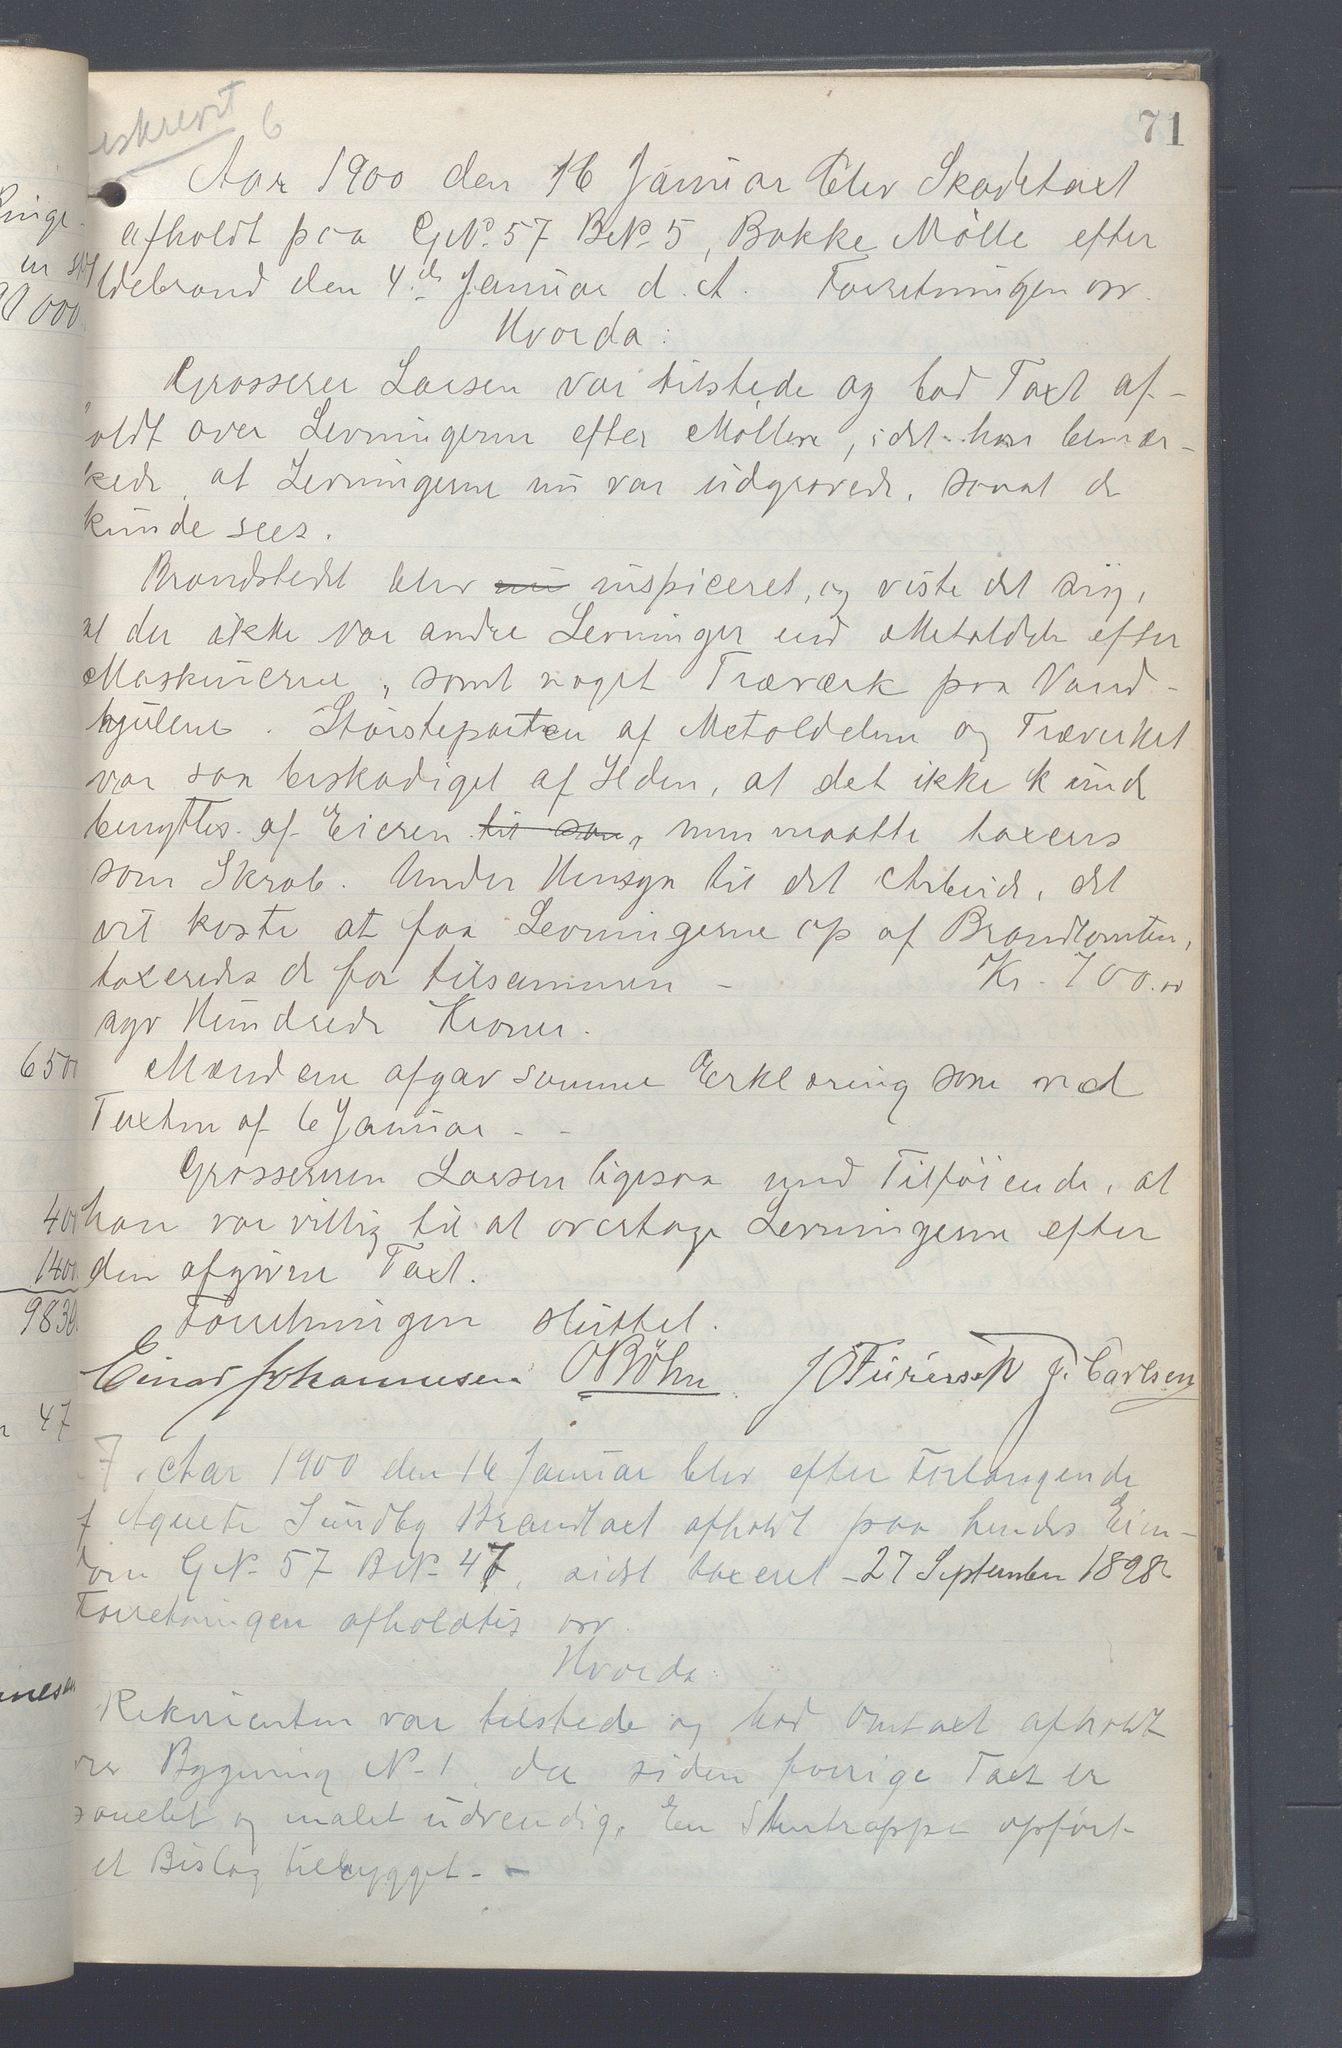 71
eskrevet
6
Aar 1900 den 16 Januar blev Skadetaxt
afholdt paa G.No. 57 B.No. 5, Bakke Mølle efter
Ildebrand den 4.de Januar d. A. Forretningen
Hvorda:
Grosserer Larsen var tilstede og bad Taxt af-
holdt over Levningerne efter Møllen, idet han bemær-
kede, at Levningerne nu var udgravede, saaat de
kunde sees.
Brandstedet blev nu inspiceret, og viste det sig,
at der ikke var andre Levninger end Metaldele efter
Maskinerne, samt noget Træværk paa Vand-
hjulene. Størsteparten af Metaldelene og Træverket
var saa beskadiget af Ilden, at det ikke kunde
benyttes af Eieren til som, men maatte taxeres
som Skrab. Under Hensyn til det Arbeide, det
vil koste at faa Levningerne op af Brandtomten,
taxeredes de for tilsammen - Kr. 700.00
syv Hundrede Kroner.
Mændene afgav samme Erklæring som ved
Taxten af 6 Januar - -
Grossereren Larsen ligesaa med Tilføiende, at
han var villig til at overtage Levningerne efter
den afgivne Taxt.
Forretningen sluttet.
Einar Johannesen O Bøhn J. Carlsen
7. Aar 1900 den 16 Januar blev efter Forlangende
af Agnete Sundby Brandtaxt afholdt paa hendes Eien-
dom G.No. 57 B.No. 47, sidst taxeret - 27 September 1898
Forretningen afholdtes
Hvorda:
Rekvirenten var tilstede og bad Omtaxt afholdt
over Bygning No. 1, der siden forrige Taxt er
panelet og malet udvendig. En Stentrappe opført
et Bislag tilbygget. -
Ringe-
en
000
650
400
1400
9830
47